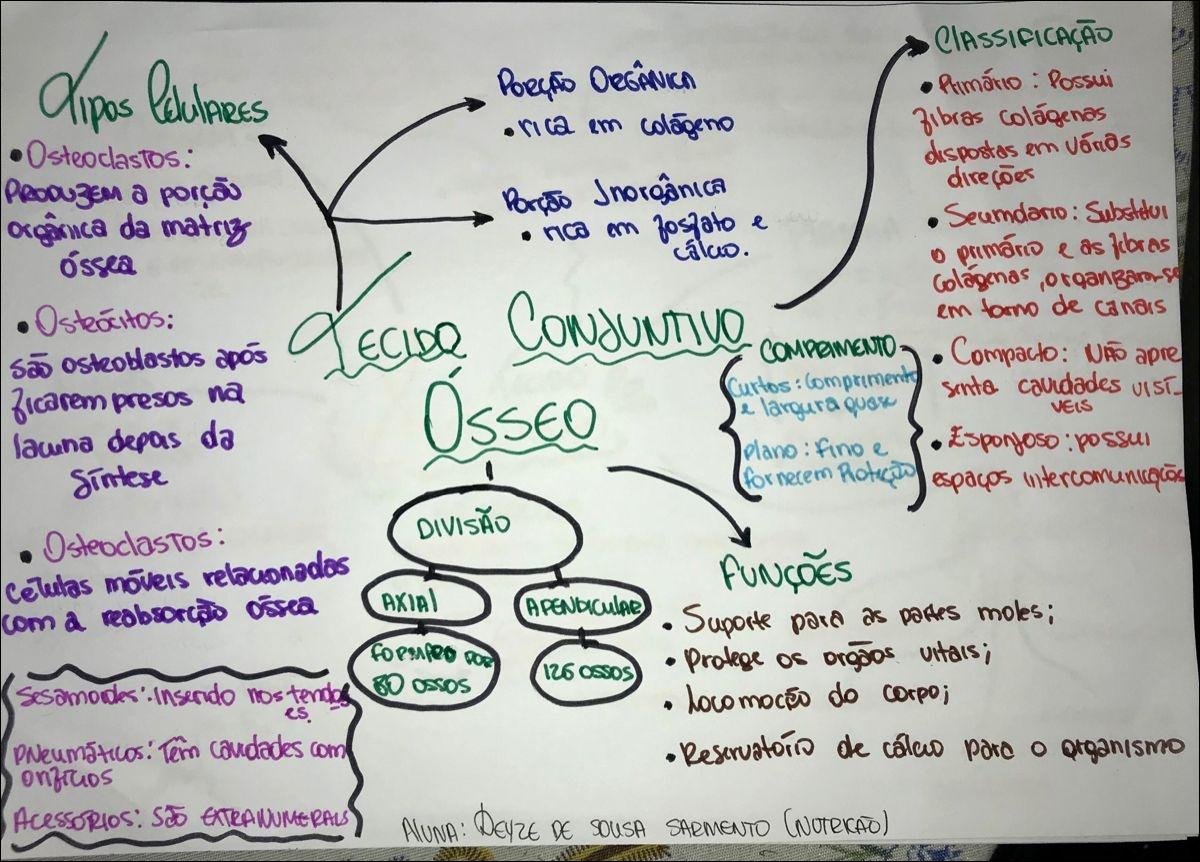 Tipos Celulares
• Osteoclastos:
Produzem a porção
orgânica da matriz
óssea
• Osteócitos:
são osteoblastos após
ficarem presos na
lacuna depais da
síntese
• Osteoclastos:
células móveis relacionadas
com a reabsorção óssea
Sesamoides: Inserido nos tendo
es.
Pneumáticos: Têm cavidades com
orifícios
Acessórios: são extranumerais
Porção Orgânica
• rica em colágeno
Porção Inorgânica
• rica em fosfato e
cálcio.
Tecido Conjuntivo
Ósseo
Divisão
Axial
Apendicular
Formado por
80 ossos
126 ossos
Classificação
• Primário: Possui
fibras colágenas
dispostas em várias
direções
• Secundário: Substitui
o primário e as fibras
colágenas, organizam-se
em torno de canais
• Compacto: Não apre
senta cavidades visí-
veis
• Esponjoso: possui
espaços intercomunicações
Comprimento
Curtos: Comprimento
e largura quase
plano: Fino e
fornecem Proteção
Funções
• Suporte para as partes moles;
• Protege os orgãos vitais;
• Locomoção do corpo;
• Reservatório de cálcio para o organismo
Aluna: Deyze de Sousa Sarmento (Nutrição)